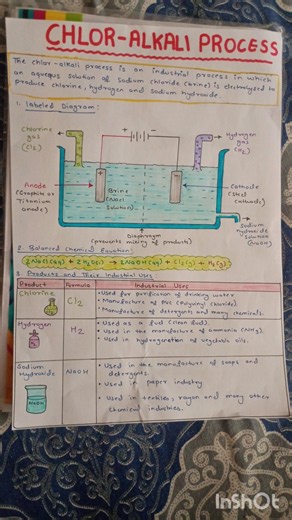 CHLOR-ALKALI PROCESS
The chlor-alkali process is an industrial process in which
an aqueous solution of sodium chloride (brine) is electrolysed to
produce chlorine, hydrogen and sodium hydroxide.
1. Labeled Diagram:
Chlorine
gas
(Cl₂)
+
-
Hydrogen
gas
(H₂)
Anode
(Graphite or
Titanium
anode)
Brine
(NaCl
solution)
Cathode
(Steel
cathode)
Diaphragm
(prevents mixing of products)
Sodium
hydroxide
solution
2. Balanced Chemical Equation:
2NaCl(aq) + 2H₂O(l) → 2NaOH(aq) + Cl₂(g) + H₂(g)
3. Products and Their Industrial Uses
Product Formula Industrial Uses
Chlorine Cl₂
• Used for purification of drinking water
• Manufacture of PVC (Polyvinyl Chloride).
• Manufacture of detergents and many chemicals.
Hydrogen H₂
• Used as a fuel (clean fuel).
• Used in the manufacture of ammonia (NH₃).
• Used in hydrogenation of vegetable oils.
Sodium
Hydroxide NaOH
• Used in the manufacture of soaps and
detergents.
• Used in paper industry
• Used in textiles, rayon and many other
chemical industries.
InShOt